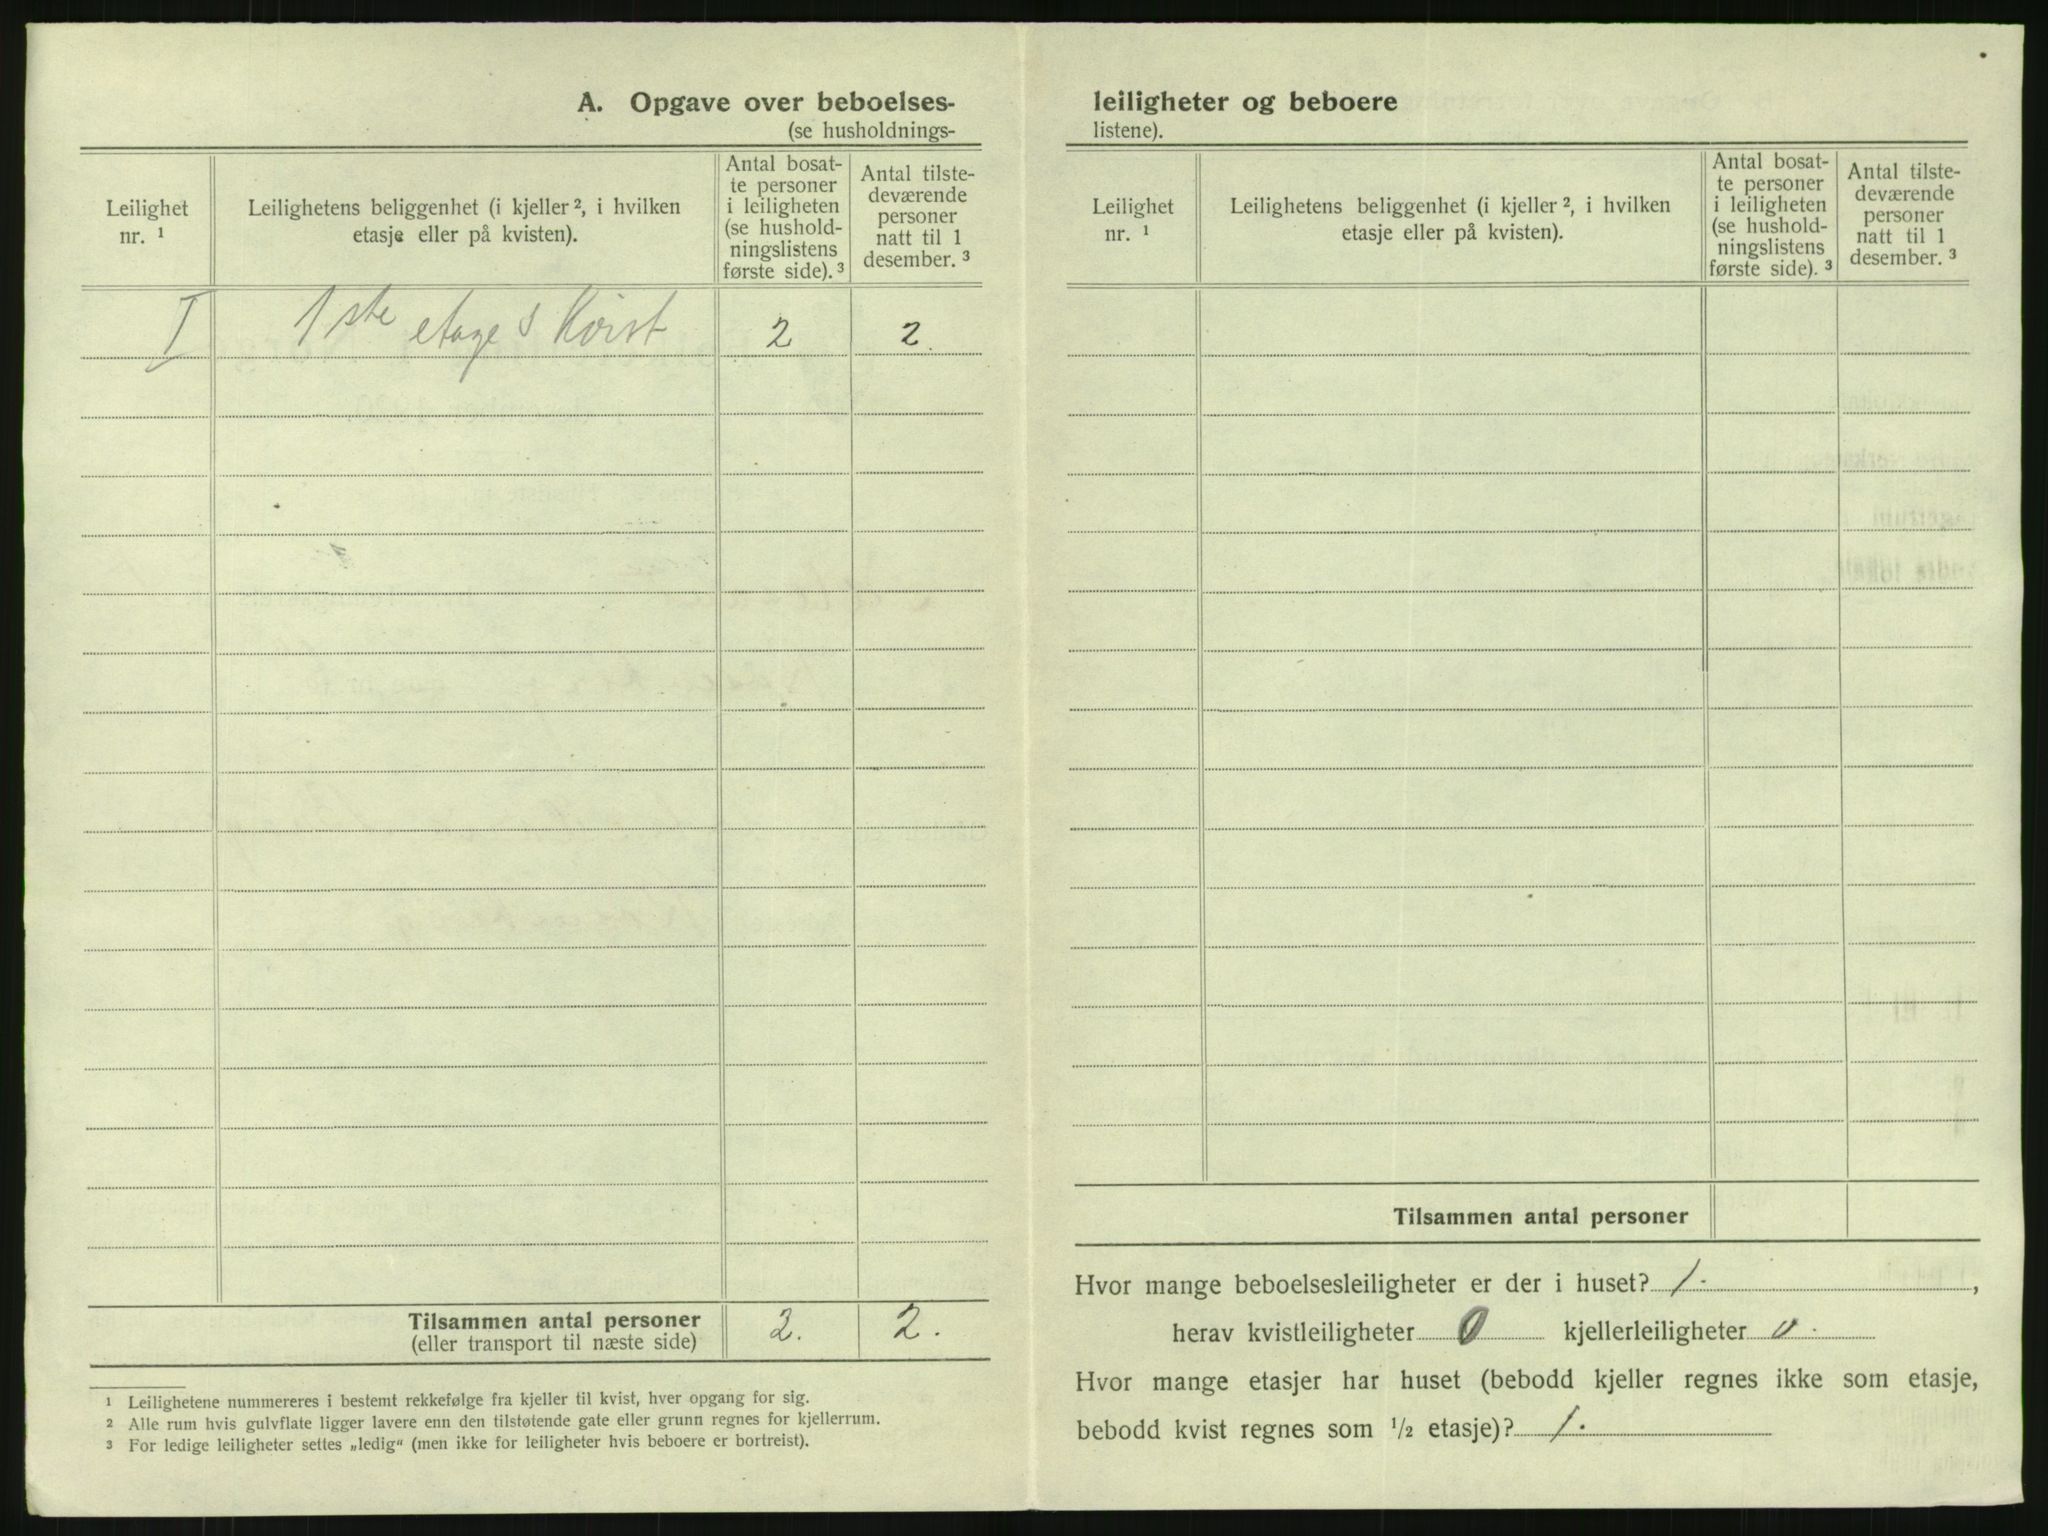 A. Opgave over beboelses-
(se husholdnings-
Leilighet
nr. ¹
Leilighetens beliggenhet (i kjeller ², i hvilken
etasje eller på kvisten).
Antal bosat-
te personer
i leiligheten
(se hushold-
ningslistens
første side). ³
Antal tilste-
deværende
personer
natt til 1
desember. ³
I 1ste etage & Kvist 2 2
Tilsammen antal personer 2. 2.
(eller transport til næste side)
¹ Leilighetene nummereres i bestemt rekkefølge fra kjeller til kvist, hver opgang for sig.
² Alle rum hvis gulvflate ligger lavere enn den tilstøtende gate eller grunn regnes for kjellerrum.
³ For ledige leiligheter settes „ledig“ (men ikke for leiligheter hvis beboere er bortreist).
leiligheter og beboere
listene).
Leilighet
nr. ¹
Leilighetens beliggenhet (i kjeller ², i hvilken
etasje eller på kvisten).
Antal bosat-
te personer
i leiligheten
(se hushold-
ningslistens
første side). ³
Antal tilste-
deværende
personer
natt til 1
desember. ³
Tilsammen antal personer
Hvor mange beboelsesleiligheter er der i huset? 1. ,
herav kvistleiligheter 0 kjellerleiligheter 0.
Hvor mange etasjer har huset (bebodd kjeller regnes ikke som etasje,
bebodd kvist regnes som ½ etasje)? 1.